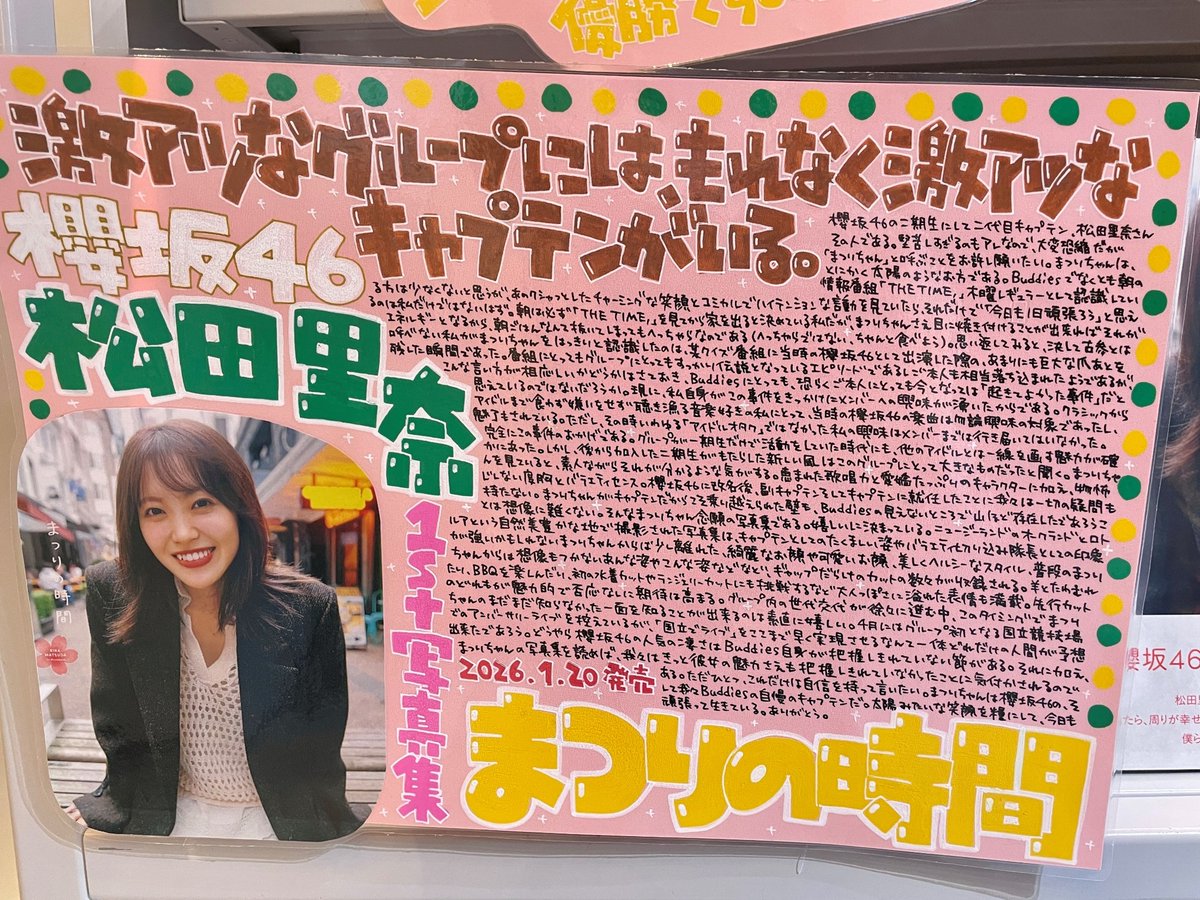 優勝です
激アツなグループにはもれなく激アツな
キャプテンがいる。
櫻坂46
松田里奈
1st写真集
2026.1.20発売
まつりの時間
櫻坂46の二期生にして二代目キャプテン、松田里奈さん
その人である。堅苦しすぎるのもアレなので、大変恐縮だが
「まつりちゃん」と呼ぶことをお許し願いたい。まつりちゃんは、
とにかく太陽のようなお方である。Buddiesでなくとも朝の
情報番組「THE TIME,」木曜レギュラーとして認識してい
る方は少なくないと思うが、あのクシャっとしたチャーミングな笑顔とコミカルでハイテンションな言動を見ていたら、それだけで「今日も1日頑張ろう」と思え
るのは私だけではないはず。朝は必ず「THE TIME,」を見てから家を出ると決めている私だが、まつりちゃんさえ目に焼き付けることが出来ればそれが
エネルギーとなるから、朝ごはんなんて抜いてしまってもへっちゃらなのである(へっちゃらではない、ちゃんと食べよう)。思い返してみると、決して古参とは
呼べない私がまつりちゃんをはっきりと認識したのは、某クイズ番組に当時の欅坂46として出演した際の、あまりにも巨大な爪あとを
残した瞬間であった。番組にとってもグループにとってもすっかり伝説となっているエピソードであるしご本人も相当落ち込まれたようであるが
こんな言い方が相応しいかどうかはさておき、Buddiesにとっても、恐らくご本人にとっても今となっては「起きてよかった事件」だと
思えているのではないだろうか。現に、私自身がこの事件をきっかけにメンバーへの興味が湧いたからである。クラシックから
アイドルまで食わず嫌いをせず聴き漁る音楽好きの私にとって、当時の欅坂46の楽曲は勿論興味の対象であったし、
魅了されている。ただし、その時いわゆる「アイドルオタク」ではなかった私の興味はメンバーまでは行き届いてはいなかった。
完全にこの事件のおかげである。グループが一期生だけで活動をしていた時代にも、他のアイドルとは一線を画す魅力が確
かにあった。しかし、後から加入した二期生がもたらした新しい風はこのグループにとって大きなものだったと聞く。まつりちゃ
んを見ていると、素人ながらそれが分かるような気がする。恵まれた歌唱力と愛嬌たっぷりのキャラクターに加え、物怖
じしない度胸とバラエティセンス。櫻坂46に改名後、副キャプテンそしてキャプテンに就任したことに我々は一切の疑問も
持たない。まつりちゃんがキャプテンだからこそ乗り越えられた壁も、Buddiesの見えないところで山ほど存在したであろうこ
とは想像に難くない。そんなまつりちゃん念願の写真集である。嬉しいに決まっている。ニュージーランドのオークランドとロト
ルアという自然美豊かな土地で撮影された写真集は、キャプテンとしてのたくましい姿やバラエティ化切り込み隊長としての印象
が強いかもしれないまつりちゃんからは少し離れた、綺麗なお顔や可愛いお顔、美しくヘルシーなスタイル、普段のまつり
ちゃんからは想像もつかないあんな姿やこんな姿などなど、ギャップだらけのカットの数々が収録される。羊とたわむれ
たり、BBQを楽しんだり、初の水着カットやランジェリーカットにも挑戦するなど大人っぽさに溢れた表情も満載。先行カット
のどれもが魅力的で否応なしに期待は高まる。グループ内の世代交代が徐々に進む中、このタイミングでまつり
ちゃんのまだまだ知らなかった一面を知ることが出来るのは素直に嬉しい。4月にはグループ初となる国立競技場
でのアニバーサリーライブを控えているが、「国立でライブ」をここまで早く実現させるなんて一体どれだけの人間が予想
出来たであろう。どうやら櫻坂46の人気の凄さはBuddies自身が把握しきれていない節がある。それに加え、
まつりちゃんの写真集を読めば、我々はきっと彼女の魅力さえも把握しきれていなかったことに気付かされるので
ある。ただひとつ、これだけは自信を持って言いたい。まつりちゃんは櫻坂46の、そ
して我々Buddiesの自慢のキャプテンだ。太陽みたいな笑顔を糧にして、今日も
頑張って生きている。ありがとう。
まつりの時間
RINA
MATSUDA
櫻坂46
松田里
たら、周りが幸せ
僕ら